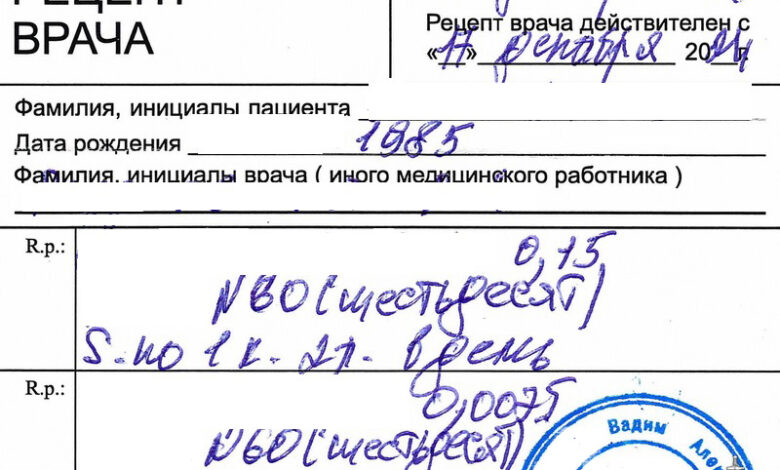 РЕЦЕПТ
ВРАЧА
Рецепт врача действителен с
«17» декабря 2024 г
Фамилия, инициалы пациента
Дата рождения 1985
Фамилия, инициалы врача ( иного медицинского работника )
R.p.:
0,15
N60 (шестьдесят)
S. по 1 к. 2 р. в день
R.p.:
0,0075
N60 (шестьдесят)
Вадим